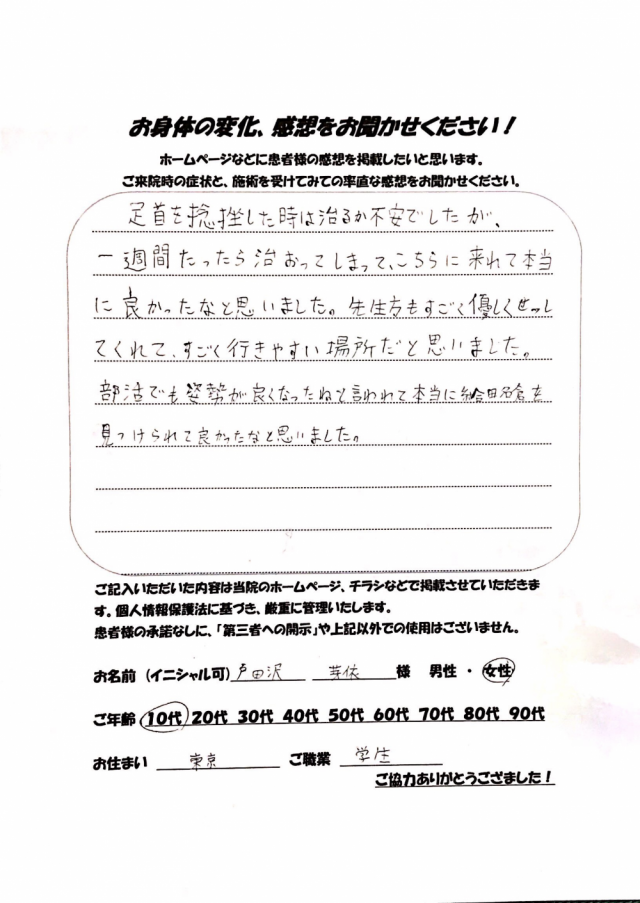 お身体の変化、感想をお聞かせください！
ホームページなどに患者様の感想を掲載したいと思います。
ご来院時の症状と、施術を受けてみての率直な感想をお聞かせください。
足首を捻挫した時は治るか不安でしたが、
一週間たったら治おってしまって、こちらに来れて本当
に良かったなと思いました。先生方もすごく優しくせっし
てくれて、すごく行きやすい場所だと思いました。
部活でも姿勢が良くなったねと言われて本当に
見つけられて良かったなと思いました。
ご記入いただいた内容は当院のホームページ、チラシなどで掲載させていただきま
す。個人情報保護法に基づき、厳重に管理いたします。
患者様の承諾なしに、「第三者への開示」や上記以外での使用はございません。
お名前（イニシャル可） 戸田沢 芽依 様 男性・女性
ご年齢 10代 20代 30代 40代 50代 60代 70代 80代 90代
お住まい 東京 ご職業 学生
ご協力ありがとうござました！